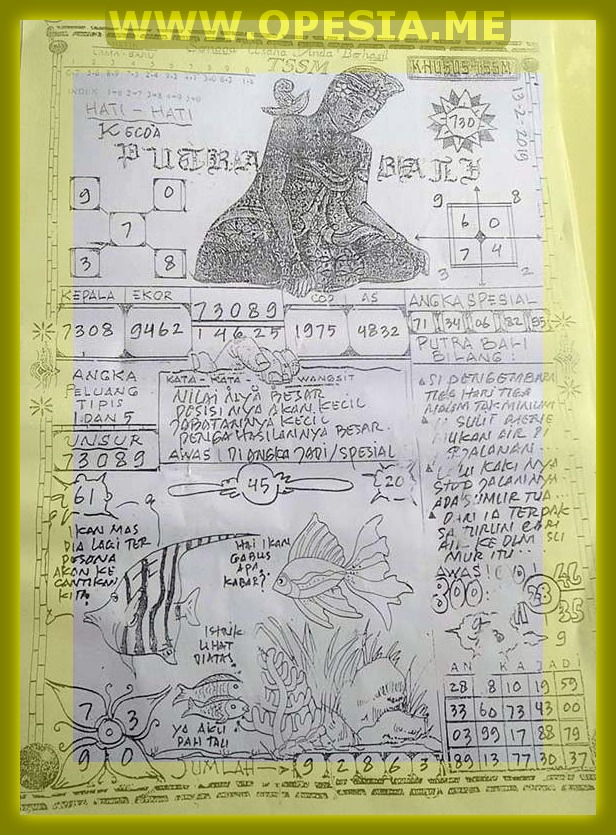 WWW.OPESIA.ME
LAMA - BARU
TSSM
KHUSUS TSSM
INDEK
HATI - HATI
KECOA
PUTRA BALI
730
13-2-2019
9 0
7
3 8
9 8
6 0
7 4
3 2
KEPALA EKOR
7308 9462
73089
14625
CO2 AS
1975 4832
ANGKA SPESIAL
71 34 06 82 85
PUTRA BALI
BILANG :
ANGKA
PELUANG
TIPIS
1 DAN 5
UNSUR
73089
KATA - KATA WANGSIT
NILAI NYA BESAR
POSISI NYA AKAN KECIL
JABATANNYA KECIL
PENGHASILANNYA BESAR
AWAS DI ANGKA JADI/SPESIAL
SI PENGEMBARA
TIGA HARI TIGA
MALAM TAK MINUM
SULIT
AIR DI
PJALANAN
KAKI NYA
STOP JALANNYA
ADA SUMUR TUA
DAN IA
TURUN
KE DLM SU
MUR ITU
AWAS!
61
45
20
IKAN MAS
DIA LAGI TER
PESONA
AKAN KE
CANTIKAN
KITA
HAI IKAN
GABUS
APA
KABAR?
ISTRIK
LIHAT
DIATAS
YA AKU
35
9
7 3
9 0
JUMLAH
9 2 8 6 3
AN KA JADI
28 8 10 19 59
33 60 73 43 00
03 99 17 88 79
89 13 77 30 37